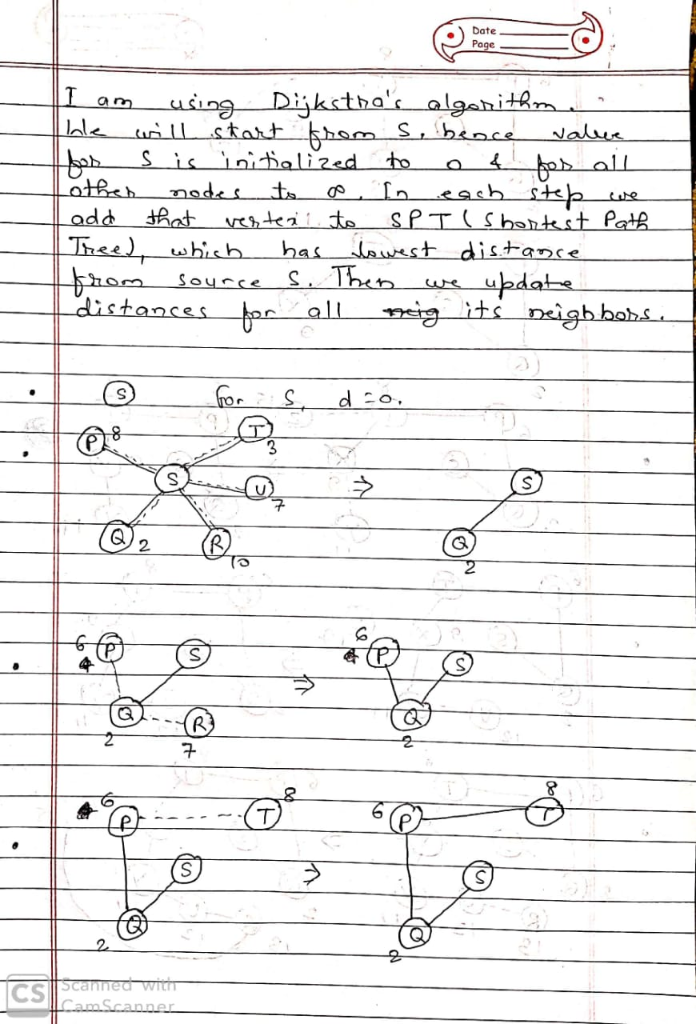 Date
Page
I am using Dijkstra's algorithm.
We will start from S, hence value
for S is initialized to 0 & for all
other nodes to ∞. In each step we
add that vertex to SPT (Shortest Path
Tree), which has lowest distance
from source S. Then we update
distances for all neig its neighbors.
S for S, d = 0.
P 8 T 3
S U 7 ⇒ S
Q 2 R 10 Q 2
6 P S ⇒ 6 P S
Q 2 R 7 Q 2
6 P T 8 6 P T 8
S ⇒ S
Q 2 Q 2
CS Scanned with
CamScanner